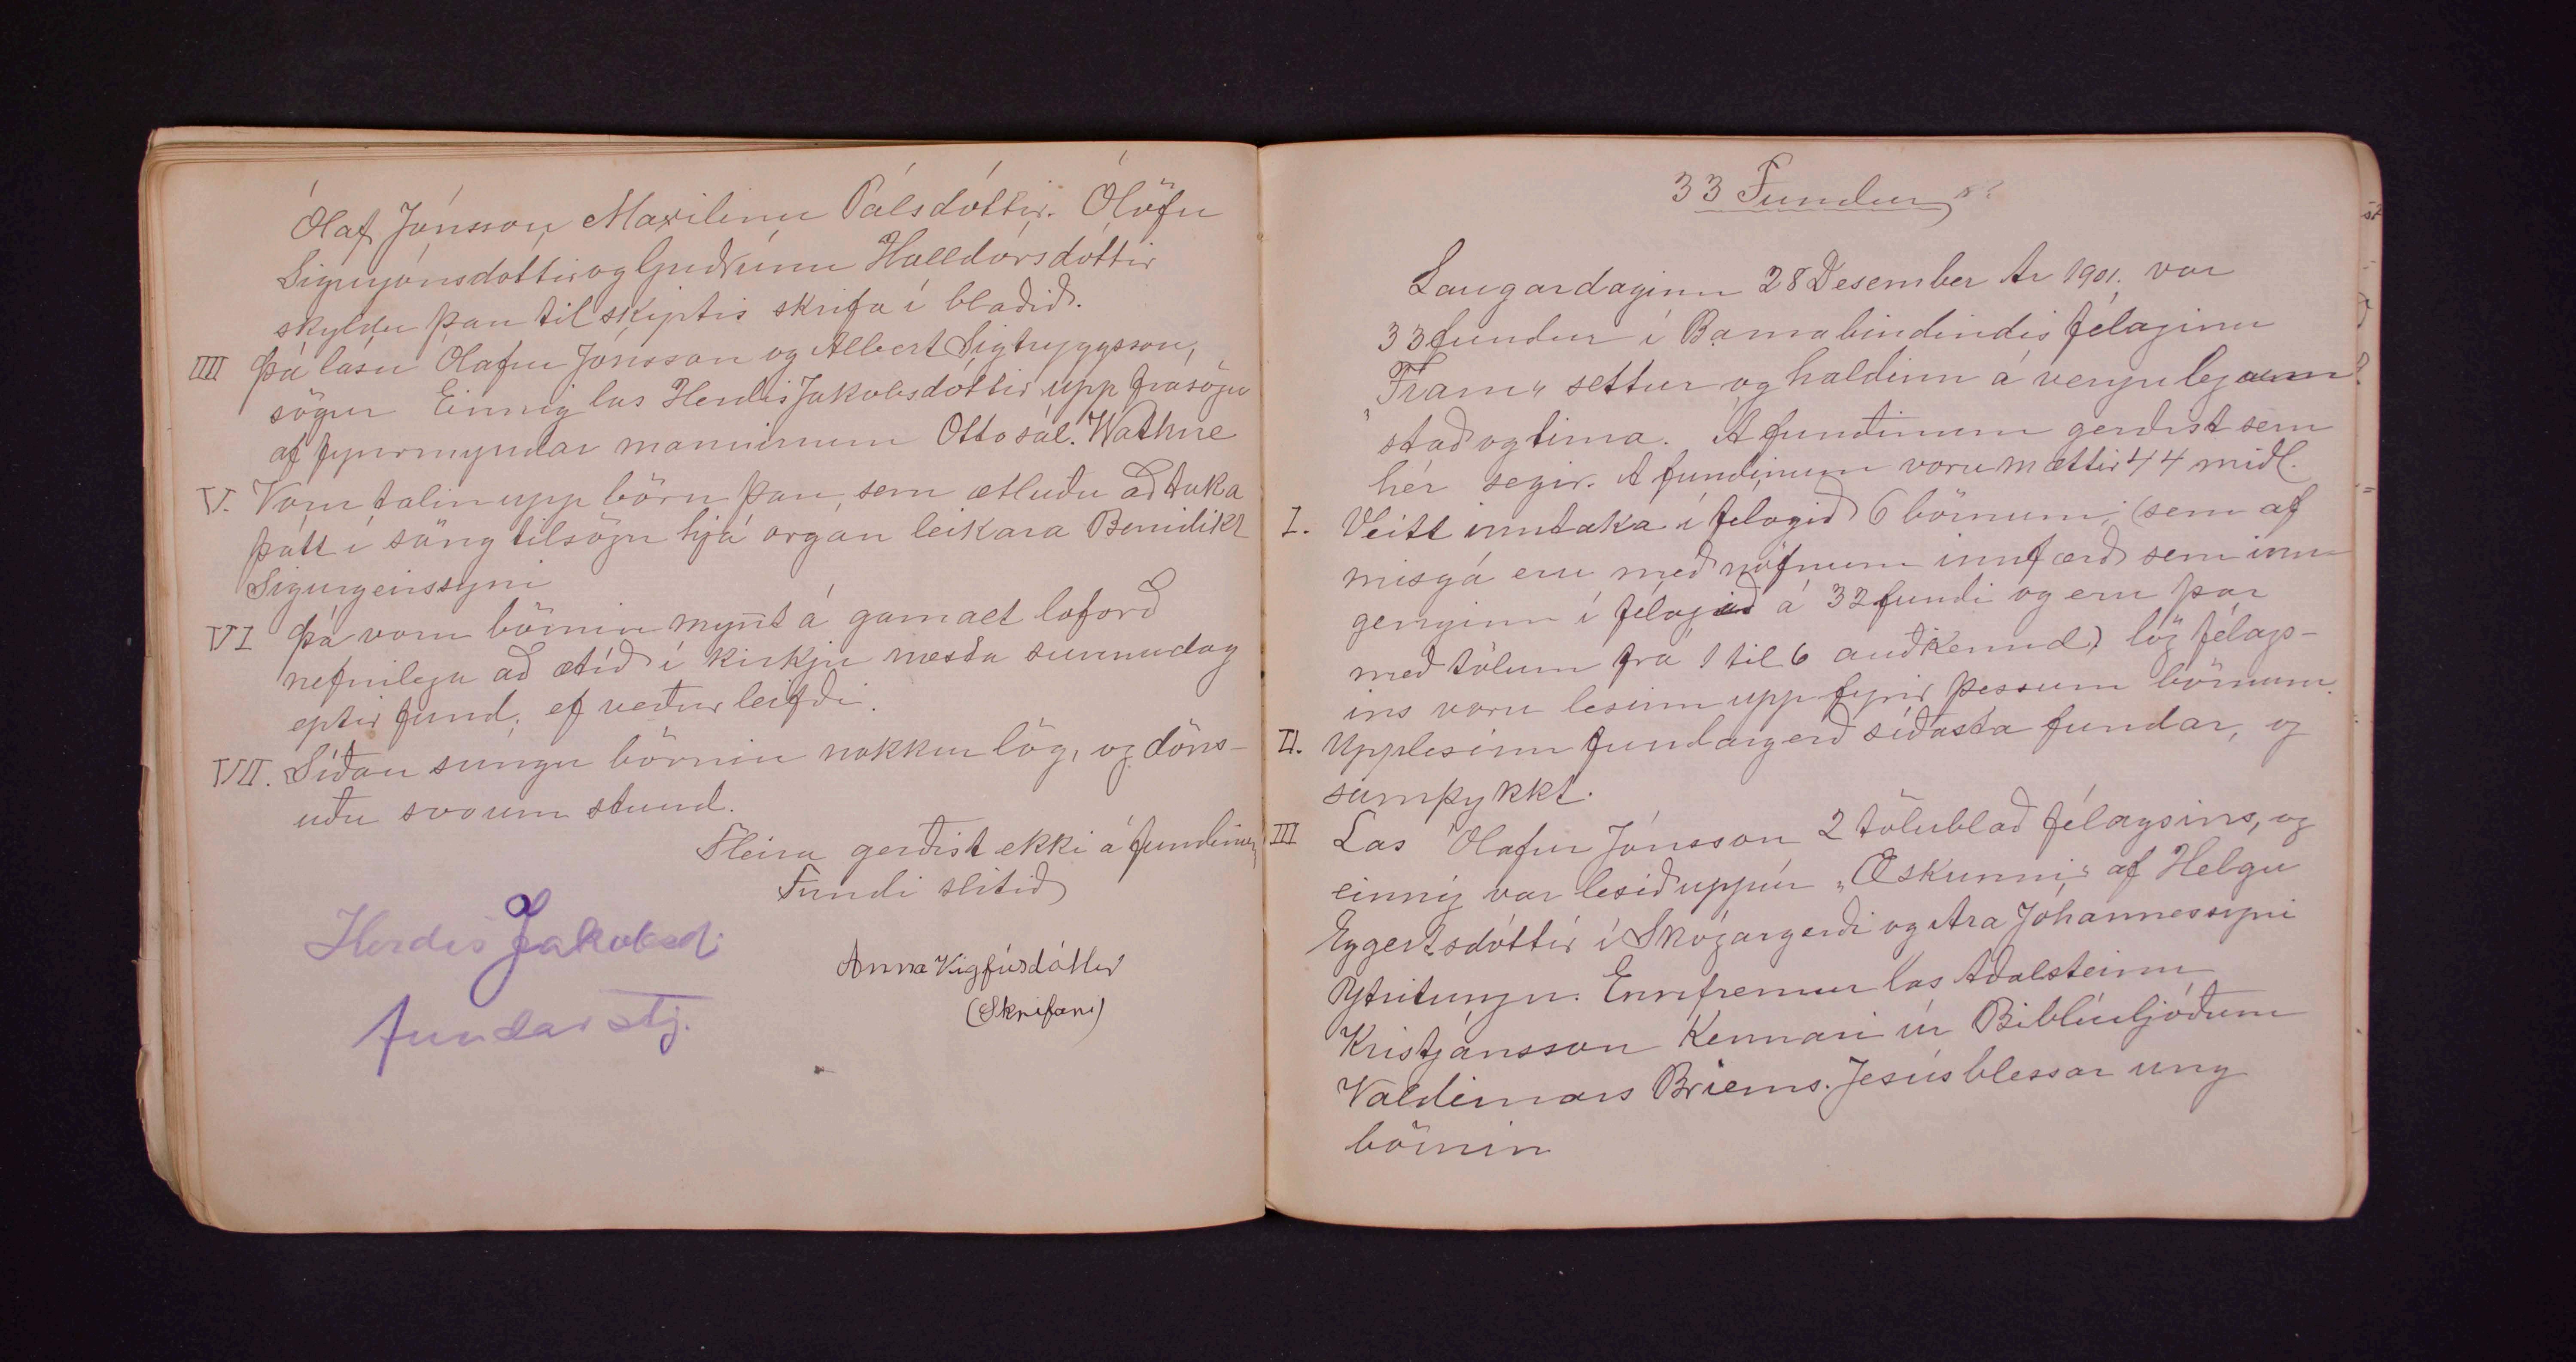 Ólaf Jónsson, Maxilínu Pálsdóttir. Ólöfu
Sigurjónsdottir og Guðrúnu Halldórsdóttir
skyldu þau til skiptis skrifa í blaðið.
IIII Þá lásu Ólafur Jónsson og Albert Sigtryggsson,
sögur Einnig las Herdís Jakobsdóttir upp frásögu
af fyrirmyndar manninum Otto sál. Wathne
V. Voru talin upp börn þau, sem ætluðu að taka
þátt í söng tilsögn hjá organ leikara Benidikt
Sigurgeirssyni
VI Þá voru börnin mynt á gamalt loforð
nefnilega að ætíð í kirkju næsta sunnudag
eptir fund, ef veður leifði.
VII. Síðan sungu börnin nokkur lög, og döns-
uðu svo um stund.
Fleira gerðist ekki á fundinum
Fundi slitið
Herdís Jakobsd.
fundarstj.
Anna Vigfúsdóttir
(Skrifari)
33 Fundur
Laugardaginn 28 Desember Ár 1901, var
33 fundur í Barnabindindis félaginu
„Fram" settur og haldinn á venjulegum
stað og tíma. Á fundinum gerðist sem
hér segir. Á fundinum voru mættir 44 miðl.
I. Veitt inntaka í félagið 6 börnum; (sem af
misgá eru með nöfnum innfærð sem inn
genginn í félagið á 32 fundi og eru þar
með tölum frá 1 til 6 auðkennd) lög félags-
ins voru lesinn upp fyrir þessum börnum.
II. Upplesinn fundargerð síðasta fundar, og
samþykkt.
III Las Ólafur Jónsson 2 tölublað félagsins, og
einnig var lesið uppúr „Æskunni," af Helgu
Eggertsdóttir í Skógargerði og Ara Jóhannessyni
Ytritungu. Ennfremur las Aðalsteinn
Kristjánsson Kennari úr Biblíuljóðum
Valdimars Briems. Jesús blessar ung
börnin